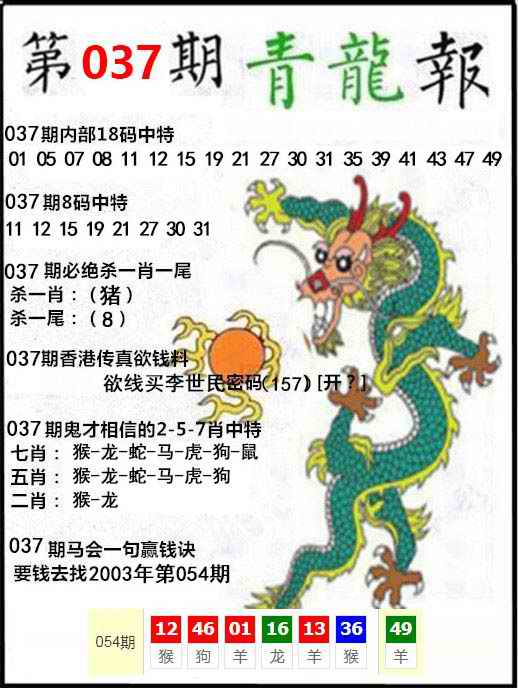 第037期青龍報
037期内部18码中特
01 05 07 08 11 12 15 19 21 27 30 31 35 39 41 43 47 49
037期8码中特
11 12 15 19 21 27 30 31
037期必绝杀一肖一尾
杀一肖：（猪）
杀一尾：（8）
037期香港传真欲钱料
欲线买李世民密码(157)[开?]
037期鬼才相信的2-5-7肖中特
七肖：猴-龙-蛇-马-虎-狗-鼠
五肖：猴-龙-蛇-马-虎-狗
二肖：猴-龙
037期马会一句赢钱诀
要钱去找2003年第054期
054期 12 46 01 16 13 36 49
猴 狗 羊 龙 羊 猴 羊